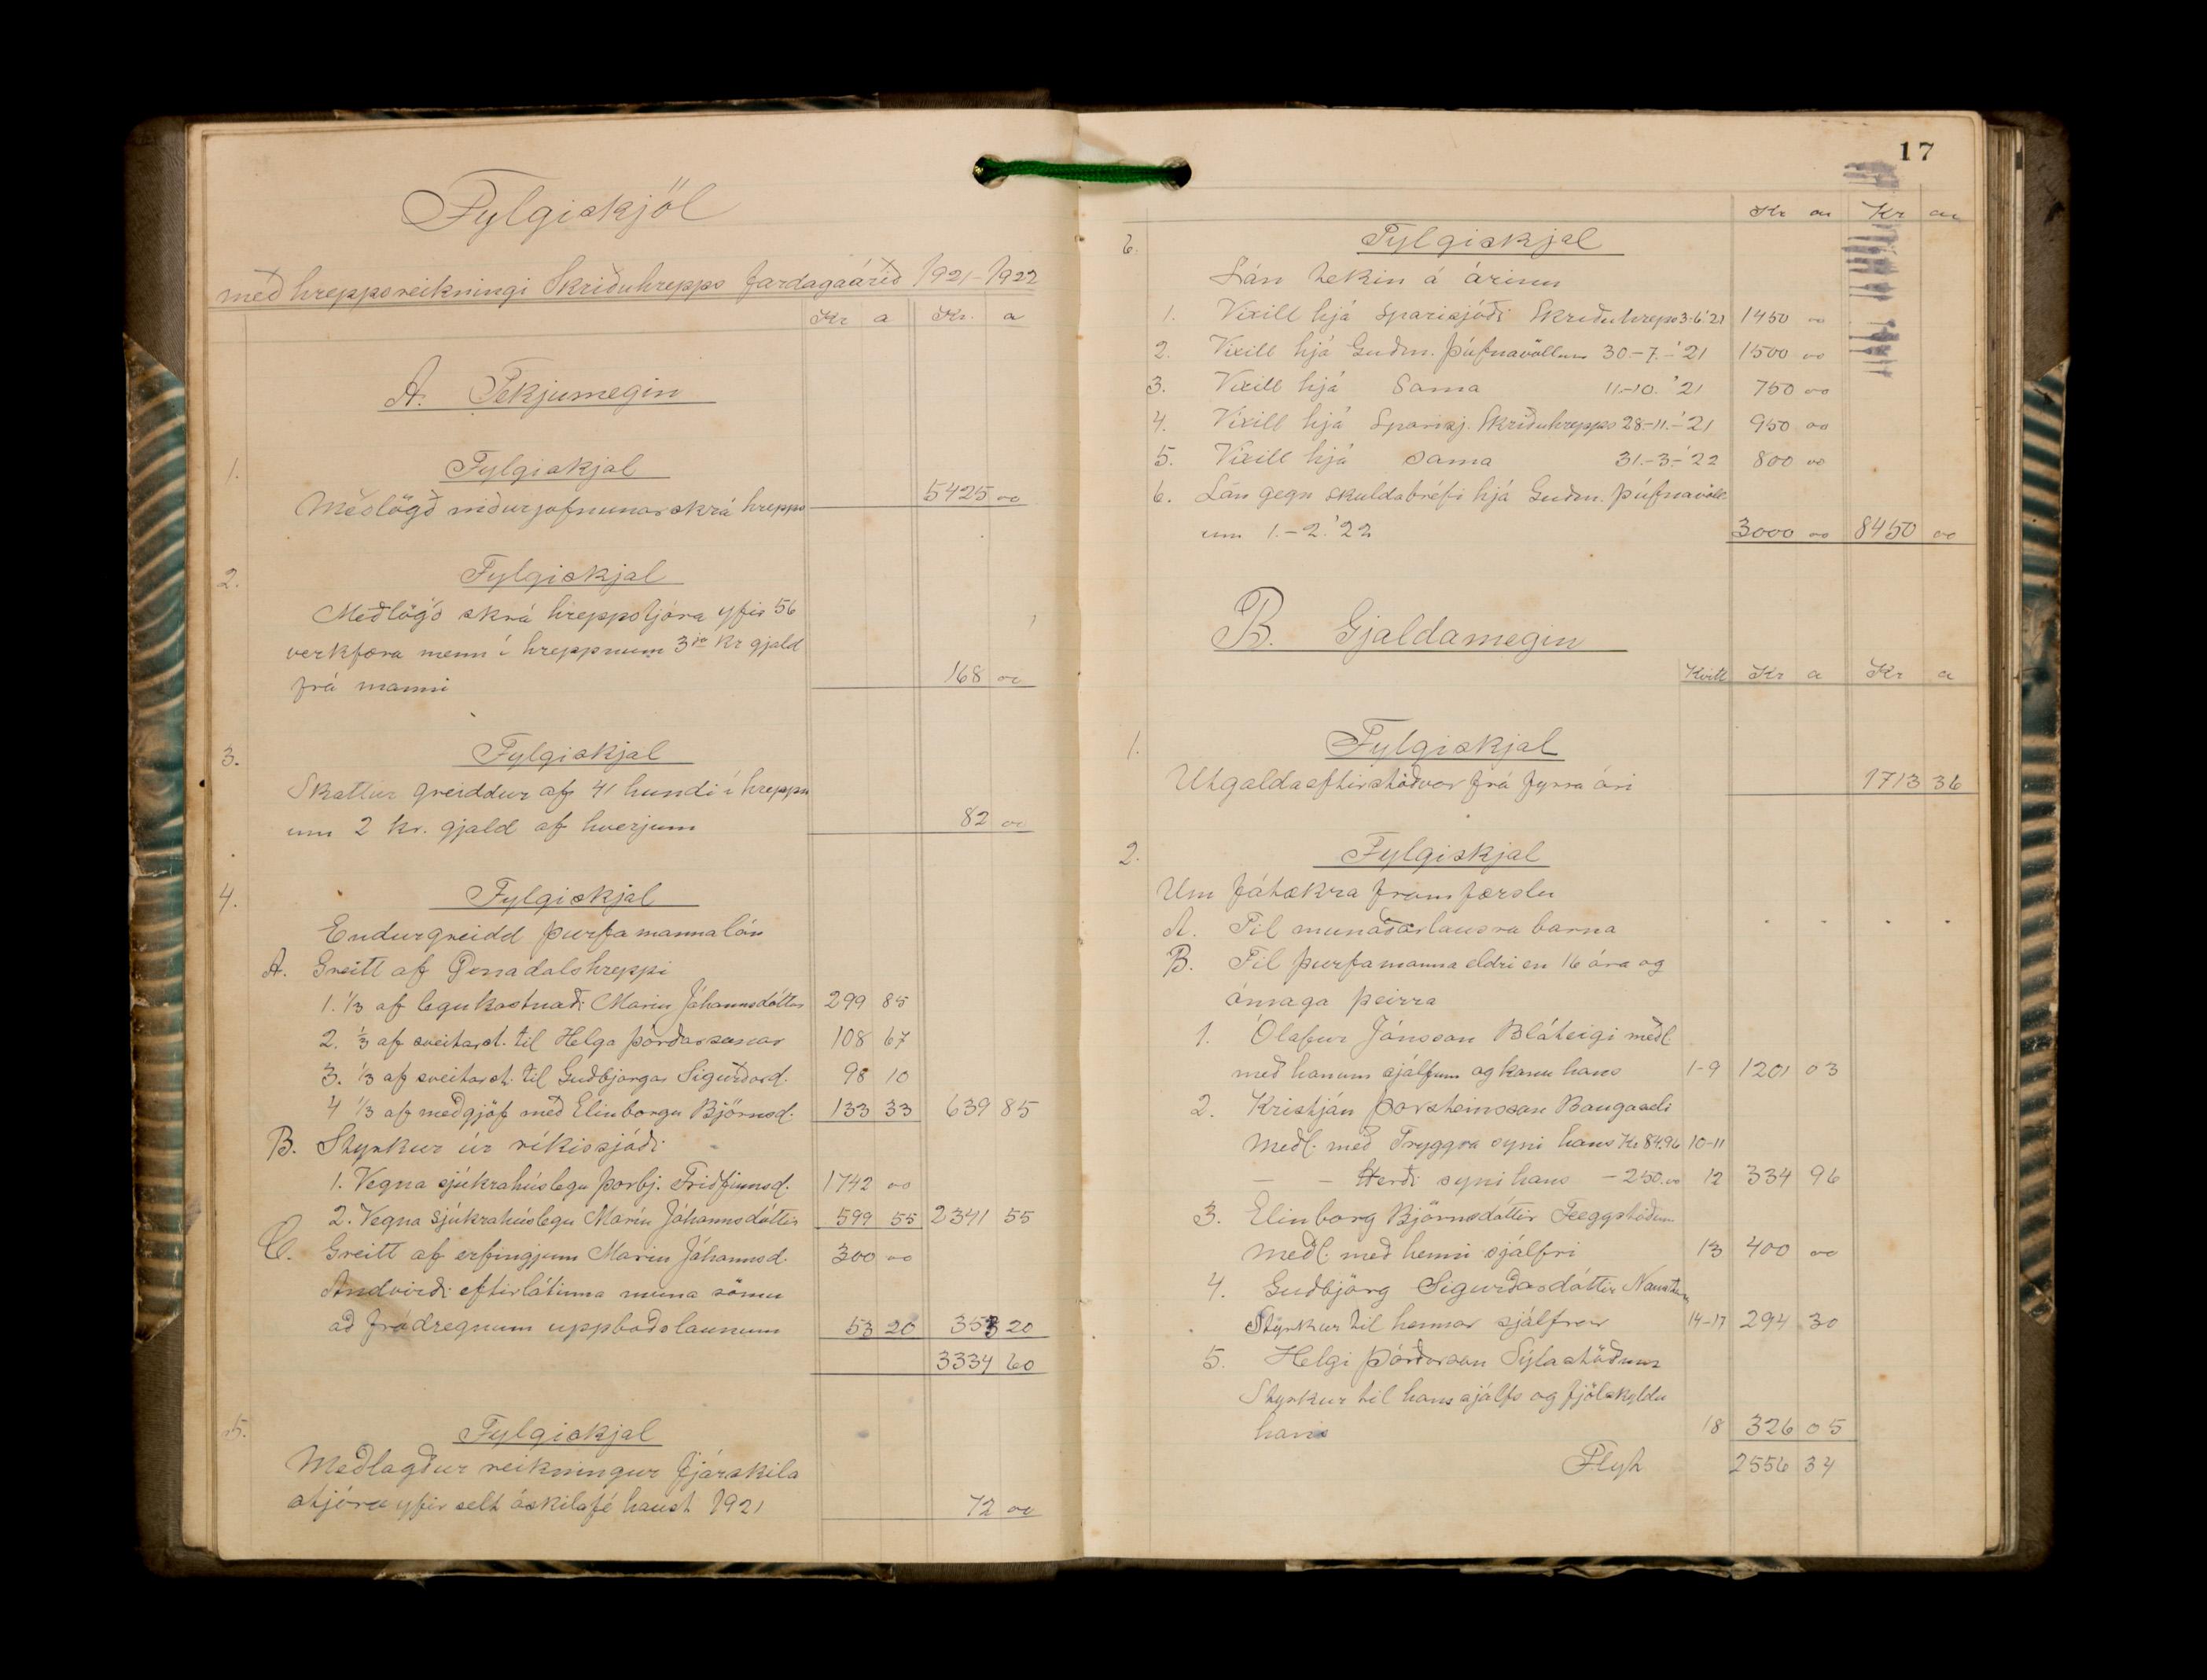 Fylgiskjöl
með hreppsreikningi Skriðuhrepps fardagaárið 1921-1922
Kr a Kr. a
A. Tekjumegin
1. Fylgiskjal
Meðlögð niðurjöfnunarskrá hrepps 5425 00
2. Fylgiskjal
Meðlögð skrá hreppstjóra yfir 56
verkfæra menn í hreppnum 3ja kr gjald
frá manni 168 00
3. Fylgiskjal
Skattur greiddur af 41 hundi í hreppn
um 2 kr. gjald af hverjum 82 00
4. Fylgiskjal
Endurgreidd þurfamannalán
A. Greitt af hreppi
1. 1/3 af legukostnaði Maríu Jóhannsdóttur 299 85
2. 1/3 af sveitarst. til Helga Þórðarsonar 108 67
3. 1/3 af sveitarst. til Guðbjargar Sigurðard. 98 10
4 1/3 af meðgjöf með Elinborgu Björnsd. 133 33 639 85
B. Styrkur úr ríkissjóði
1. Vegna sjúkrahúslegu Þorbj. Friðfinnsd. 1742 00
2. Vegna sjúkrahúslegu Maríu Jóhannsdóttir 599 55 2341 55
C. Greitt af erfingjum Maríu Jóhannsd. 300 00
Andvirði eftirlátinna muna sömu
að frádregnum uppboðslaunum 53 20 353 20
3334 60
5. Fylgiskjal
Meðlagður reikningur fjárskila
stjóra yfir selt óskilafé haust 1921 72 00
17
Kr au Kr au
6. Fylgiskjal
Lán tekin á árinu
1. Víxill hjá Sparisjóði Skriðuhrepps 3-6'21 1450 00
2. Víxill hjá Guðm. Þúfnavöllum 30.-7.-'21 1500 00
3. Víxill hjá Sama 11.-10.'21 750 00
4. Víxill hjá Sparisj. Skriðuhrepps 28.-11.-'21 950 00
5. Víxill hjá Sama 31.-3.-'22 800 00
6. Lán gegn skuldabréfi hjá Guðm. Þúfnavöll
um 1.-2.'22 3000 00 8450 00
B. Gjaldamegin
Kvitt Kr a Kr a
1. Fylgiskjal
Utgjaldaeftirstöðvar frá fyrra ári 1713 36
2. Fylgiskjal
Um fátækra framfærslu
A. Til munaðarlausra barna - - - -
B. Til þurfamanna eldri en 16 ára og
ómaga þeirra
1. Ólafur Jónsson Bláteigi meðl.
með honum sjálfum og konu hans 1-9 1201 03
2. Kristján Þorsteinsson Baugaseli
Meðl. með Tryggva syni hans Kr 84.96 10-11
- - Herði syni hans - 250.00 12 334 96
3. Elinborg Björnsdóttir
Meðl. með henni sjálfri 13 400 00
4. Guðbjörg Sigurðardóttir Naustum
Styrkur til hennar sjálfrar 14-17 294 30
5. Helgi Þórðarson Sýlastöðum
Styrkur til hans sjálfs og fjölskyldu
hans 18 326 05
Flyt 2556 34